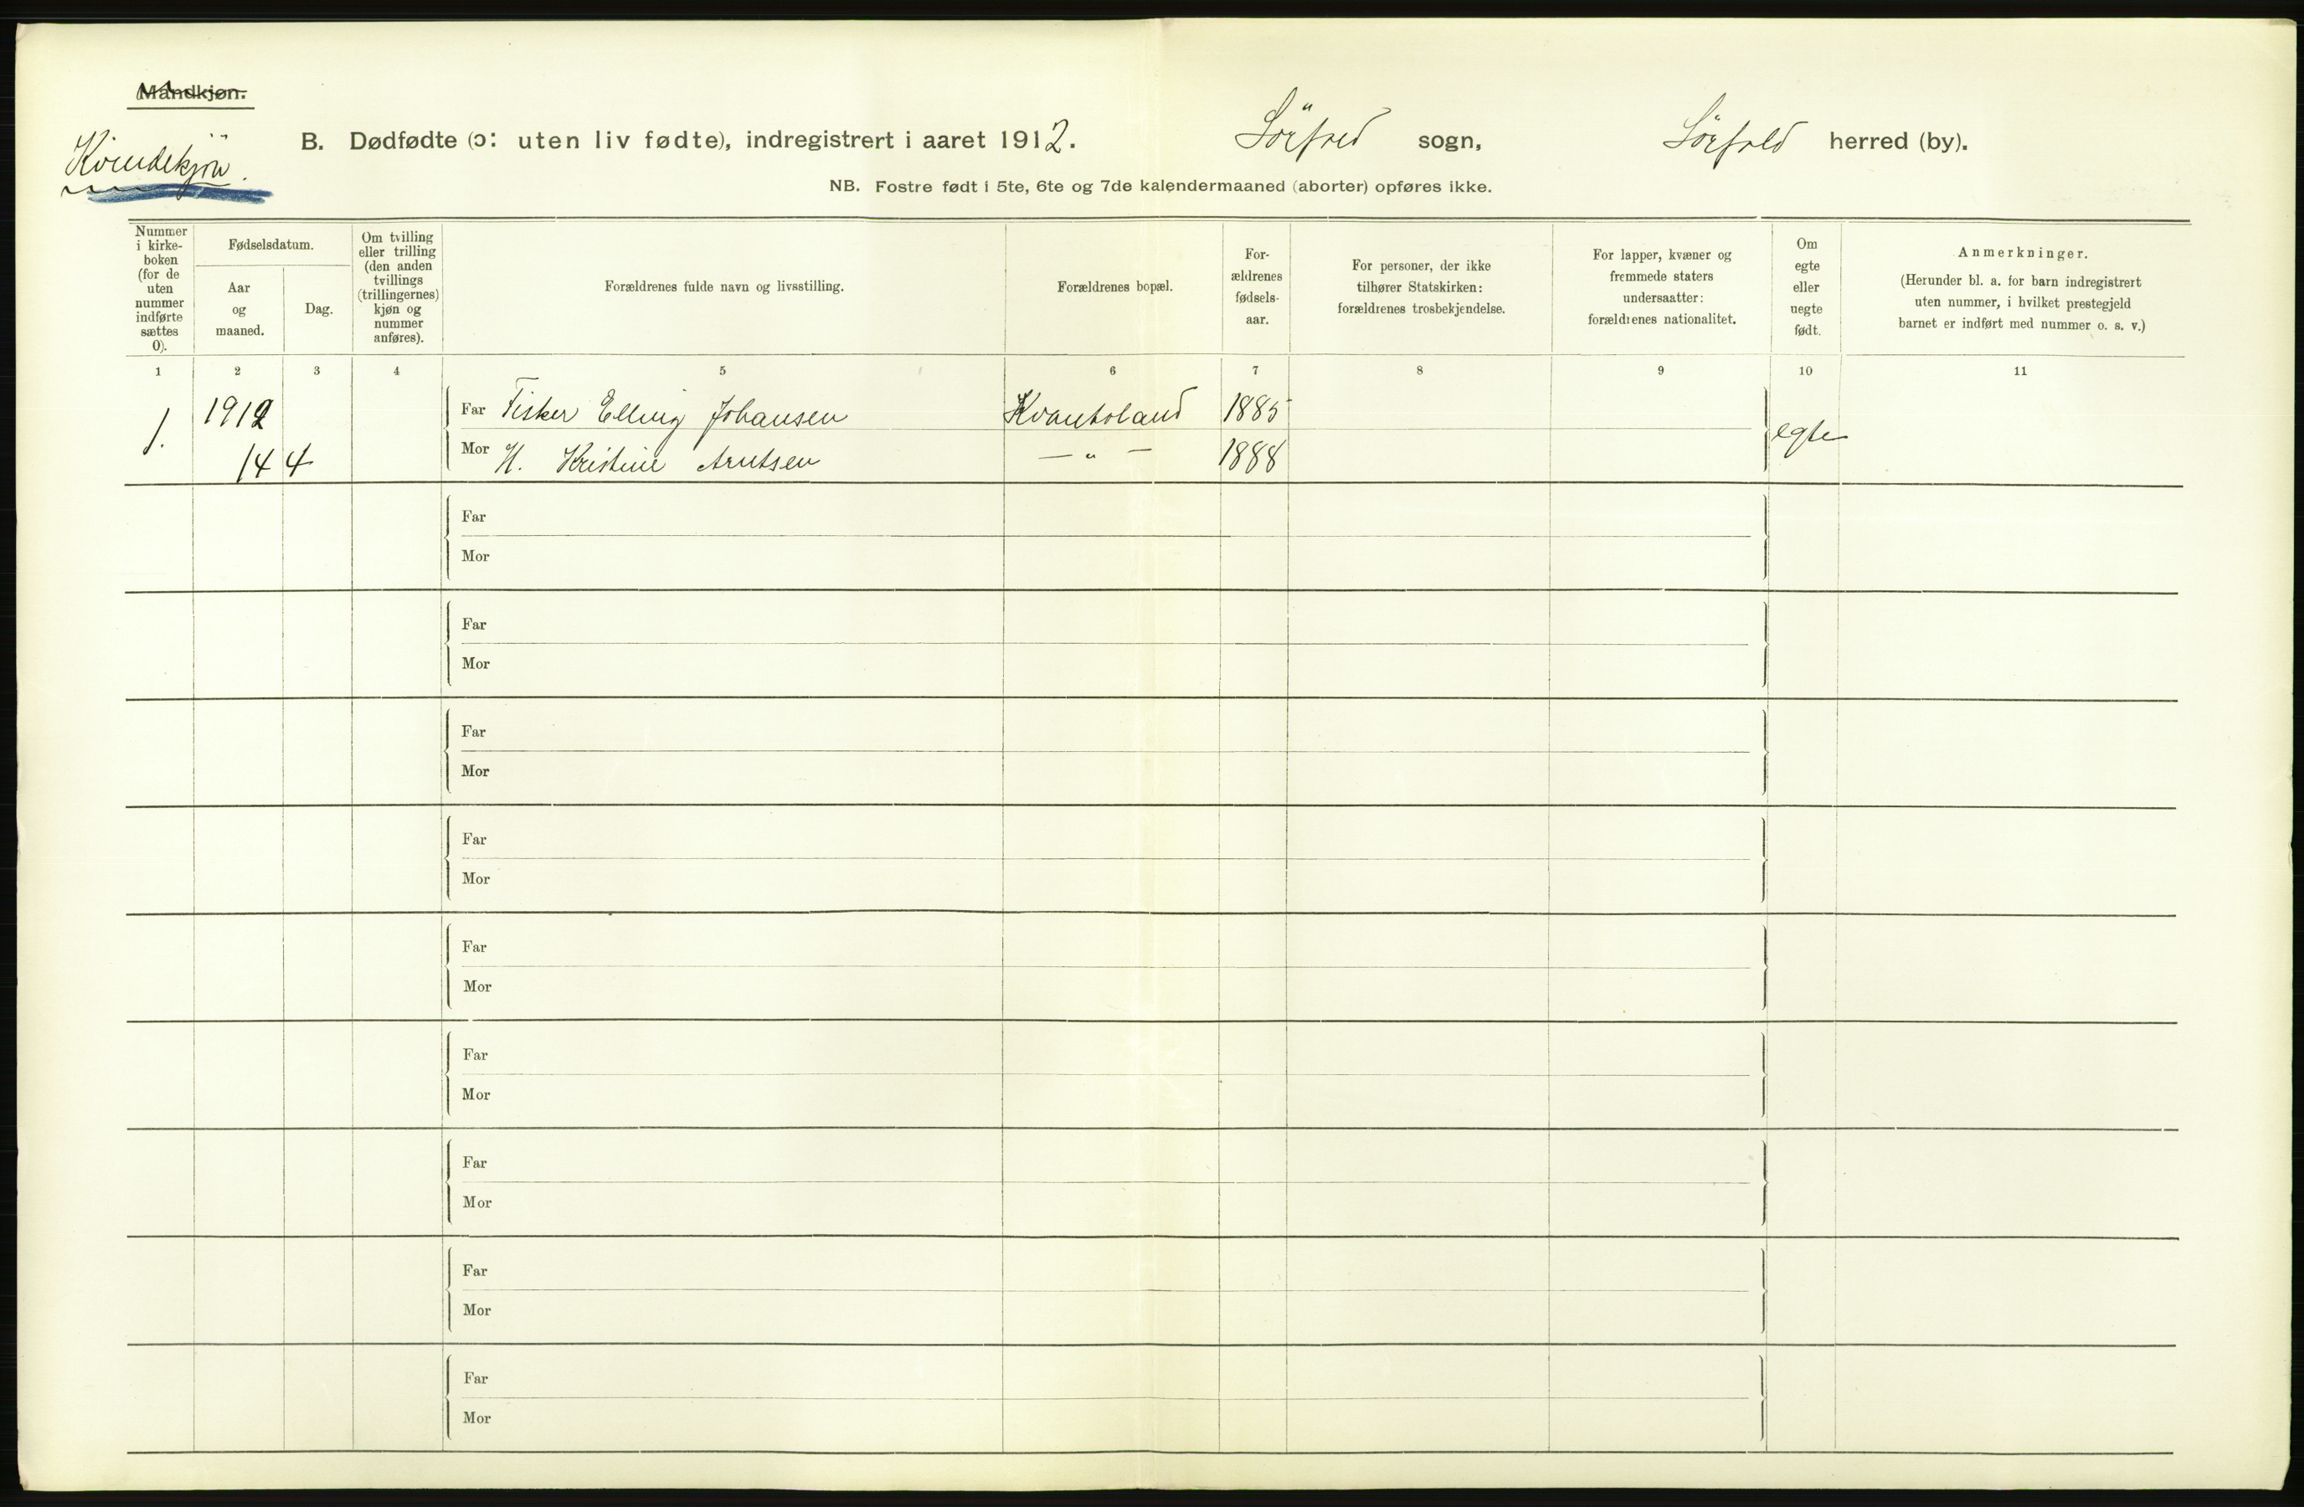 Mandkjøn.
Kvindekjön.
B. Dødfødte (ɔ: uten liv fødte), indregistrert i aaret 1912. Sörfold sogn, Sörfold herred (by).
NB. Fostre født i 5te, 6te og 7de kalendermaaned (aborter) opføres ikke.
Nummer
i kirke-
boken
(for de
uten
nummer
indførte
sættes
0).
Fødselsdatum.
Aar
og
maaned.
Dag.
Om tvilling
eller trilling
(den anden
tvillings
(trillingernes)
kjøn og
nummer
anføres).
Forældrenes fulde navn og livsstilling.
Forældrenes bopæl.
For-
ældrenes
fødsels-
aar.
For personer, der ikke
tilhører Statskirken:
forældrenes trosbekjendelse.
For lapper, kvæner og
fremmede staters
undersaatter:
forældrenes nationalitet.
Om
egte
eller
uegte
født.
Anmerkninger.
(Herunder bl. a. for barn indregistrert
uten nummer, i hvilket prestegjeld
barnet er indført med nummer o. s. v.)
1 2 3 4 5 6 7 8 9 10 11
1. 1912 Far Fisker Elling Johansen Kvantoland 1885 egte
14 4 Mor H. Kristine Arntsen — „ — 1888
Far
Mor
Far
Mor
Far
Mor
Far
Mor
Far
Mor
Far
Mor
Far
Mor
Far
Mor
Far
Mor